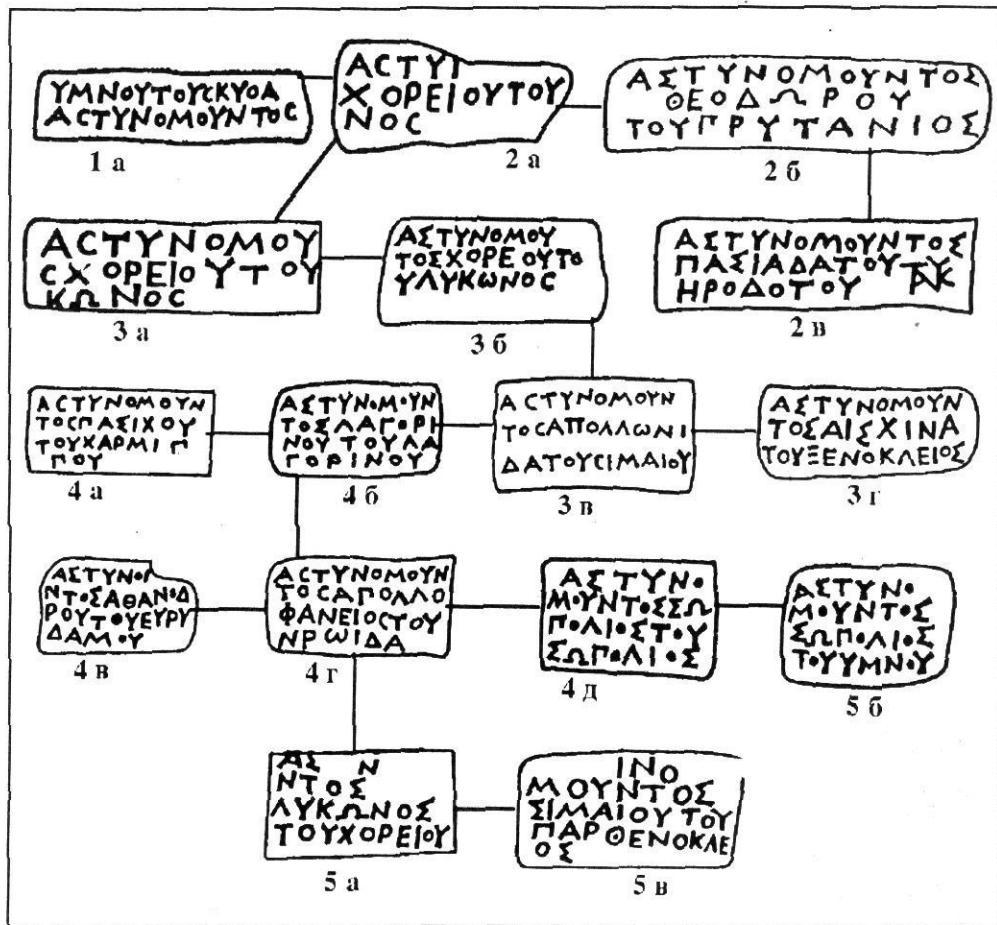 ΥΜΝΟΥΤΟΥϹΚΥΘΑ
ΑϹΤΥΝΟΜΟΥΝΤΟϹ
1 а
ΑϹΤΥΙ
ΧΟΡΕΙΟΥΤΟΥ
ΝΟϹ
2 а
ΑΣΤΥΝΟΜΟΥΝΤΟΣ
ΘΕΟΔΩΡΟΥ
ΤΟΥΠΡΥΤΑΝΙΟΣ
2 б
ΑϹΤΥΝΟΜΟΥ
ϹΧΟΡΕΙΟΥΤΟΥ
ΚΩΝΟϹ
3 а
ΑΣΤΥΝΟΜΟΥ
ΤΟΣΧΟΡΕΟΥΤΟ
ΥΛΥΚΩΝΟϹ
3 б
ΑΣΤΥΝΟΜΟΥΝΤΟΣ
ΠΑΣΙΑΔΑΤΟΥ
ΗΡΟΔΟΤΟΥ
2 в
ΑϹΤΥΝΟΜΟΥΝ
ΤΟϹΠΑΣΙΧΟΥ
ΤΟΥΧΑΡΜΙΠ
ΠΟΥ
4 а
ΑΣΤΥΝΟΜΟΥΝ
ΤΟΣΛΑΓΟΡΙ
ΝΟΥΤΟΥΛΑ
ΓΟΡΙΝΟΥ
4 б
ΑϹΤΥΝΟΜΟΥΝ
ΤΟϹΑΠΟΛΛΩΝΙ
ΔΑΤΟΥϹΙΜΑΙΟΥ
3 в
ΑΣΤΥΝΟΜΟΥΝ
ΤΟΣΑΙΣΧΙΝΑ
ΤΟΥΞΕΝΟΚΛΕΙΟΣ
3 г
ΑΣΤΥΝΟΙ
ΝΤΟΣΑΘΑΝΟΔ
ΡΟΥΤΟΥΕΥΡΥ
ΔΑΜΟΥ
4 в
ΑϹΤΥΝΟΜΟΥΝ
ΤΟϹΑΠΟΛΛΟ
ΦΑΝΕΙΟϹΤΟΥ
ΝΡΩΙΔΑ
4 г
ΑΣΤΥΝΟ
ΜΟΥΝΤΟΣΣΩ
ΠΟΛΙΟΣΤΟΥ
ΣΩΠΟΛΙΟΣ
4 д
ΑΣΤΥΝΟ
ΜΟΥΝΤΟΣ
ΣΩΠΟΛΙΟΣ
ΤΟΥΥΜΝΟΥ
5 б
ΑΣ Ν
ΝΤΟΣ
ΛΥΚΩΝΟΣ
ΤΟΥΧΟΡΕΙΟΥ
5 а
ΙΝΟ
ΜΟΥΝΤΟΣ
ΣΙΜΑΙΟΥΤΟΥ
ΠΑΡΘΕΝΟΚΛΕ
ΟΣ
5 в